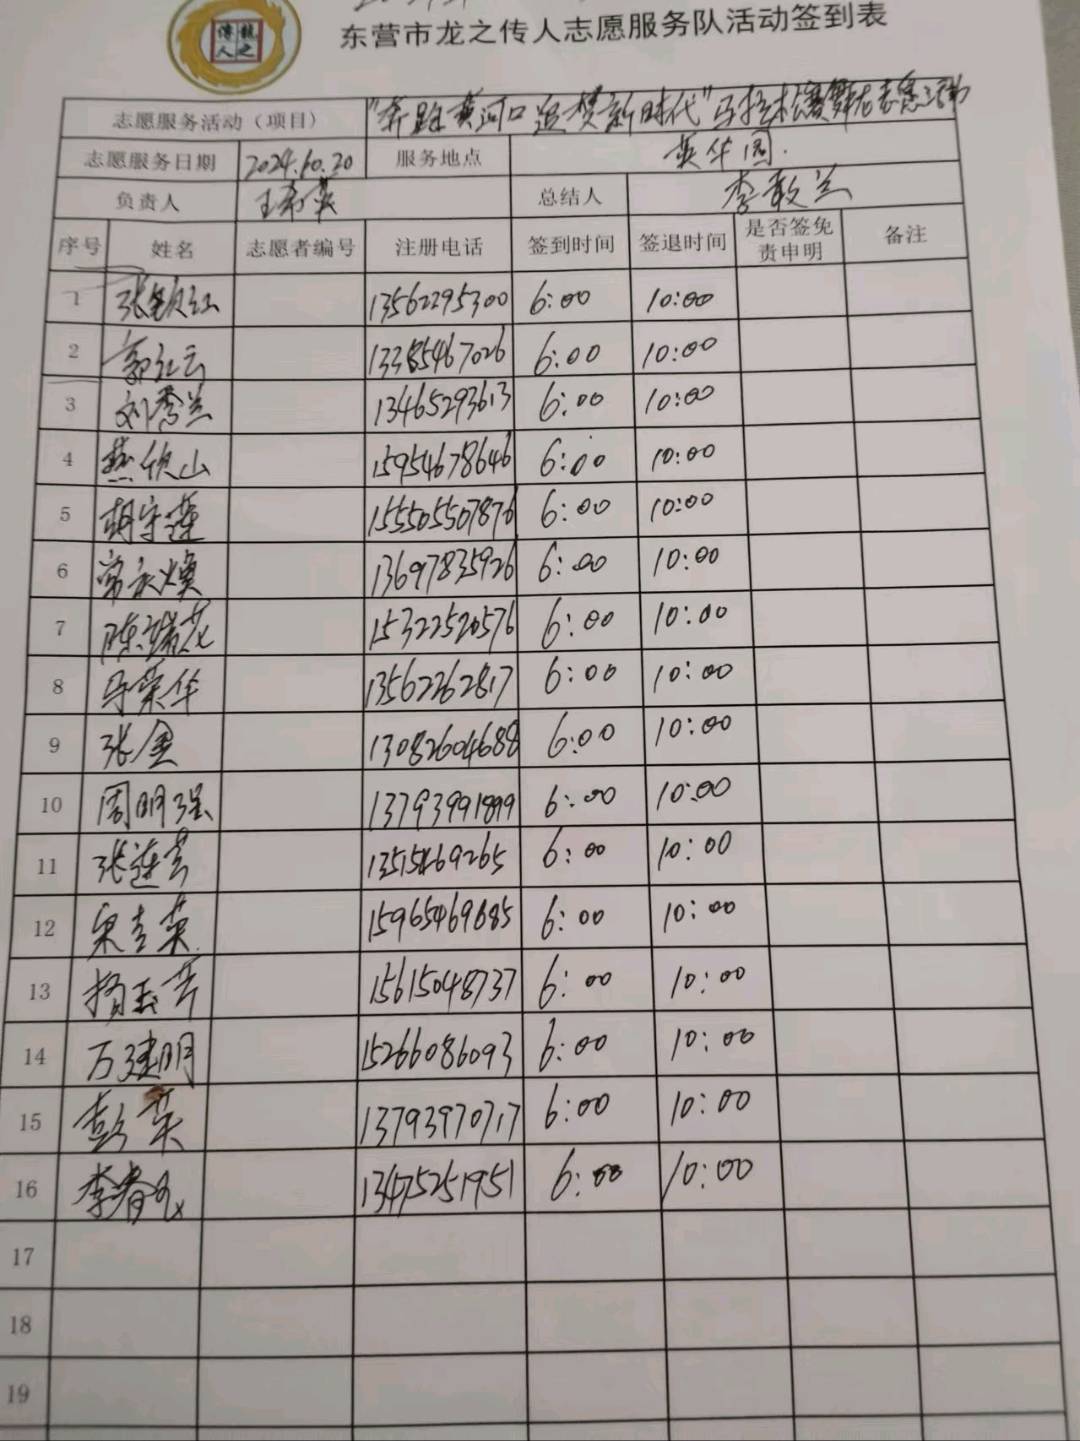 傳龍
人之
东营市龙之传人志愿服务队活动签到表
志愿服务活动（项目） "奔跑黄河口 追梦新时代"马拉松赛舞龙志愿活动
志愿服务日期 2024.10.20 服务地点 英华园.
负责人 王秀英 总结人 李敬兰
序号 姓名 志愿者编号 注册电话 签到时间 签退时间 是否签免责申明 备注
1 张 红 13562295300 6:00 10:00
2 郭红云 13385467026 6:00 10:00
3 刘秀兰 13465293613 6:00 10:00
4 燕欣山 15954678646 6:00 10:00
5 胡守莲 155505507876 6:00 10:00
6 常永焕 13697835926 6:00 10:00
7 陈瑞花 15322520576 6:00 10:00
8 马荣华 13562262817 6:00 10:00
9 张金 13082604688 6:00 10:00
10 周明强 13793991899 6:00 10:00
11 张莲芳 13515469265 6:00 10:00
12 宋吉英. 15965469685 6:00 10:00
13 杨玉芹 15615048737 6:00 10:00
14 万建明 15266086093 6:00 10:00
15 彭英 13793970717 6:00 10:00
16 李春 13475251951 6:00 10:00
17
18
19